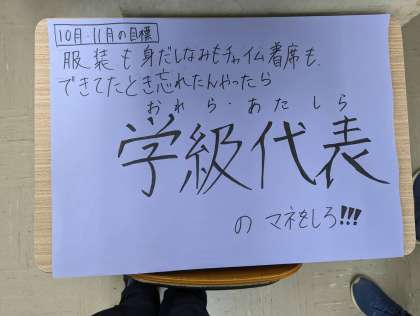 10月・11月の目標
服装も身だしなみもチャイム着席も、
できてたとき忘れたんやったら
おれら・あたしら
学級代表
のマネをしろ!!!